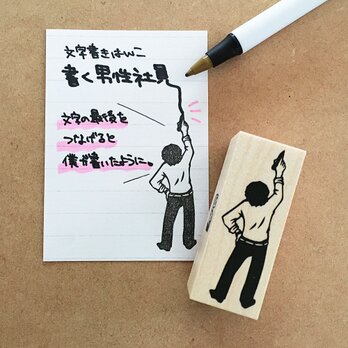 文字書きはんこ
書く男性社員
文字の最後を
つなげると
僕が書いたように。